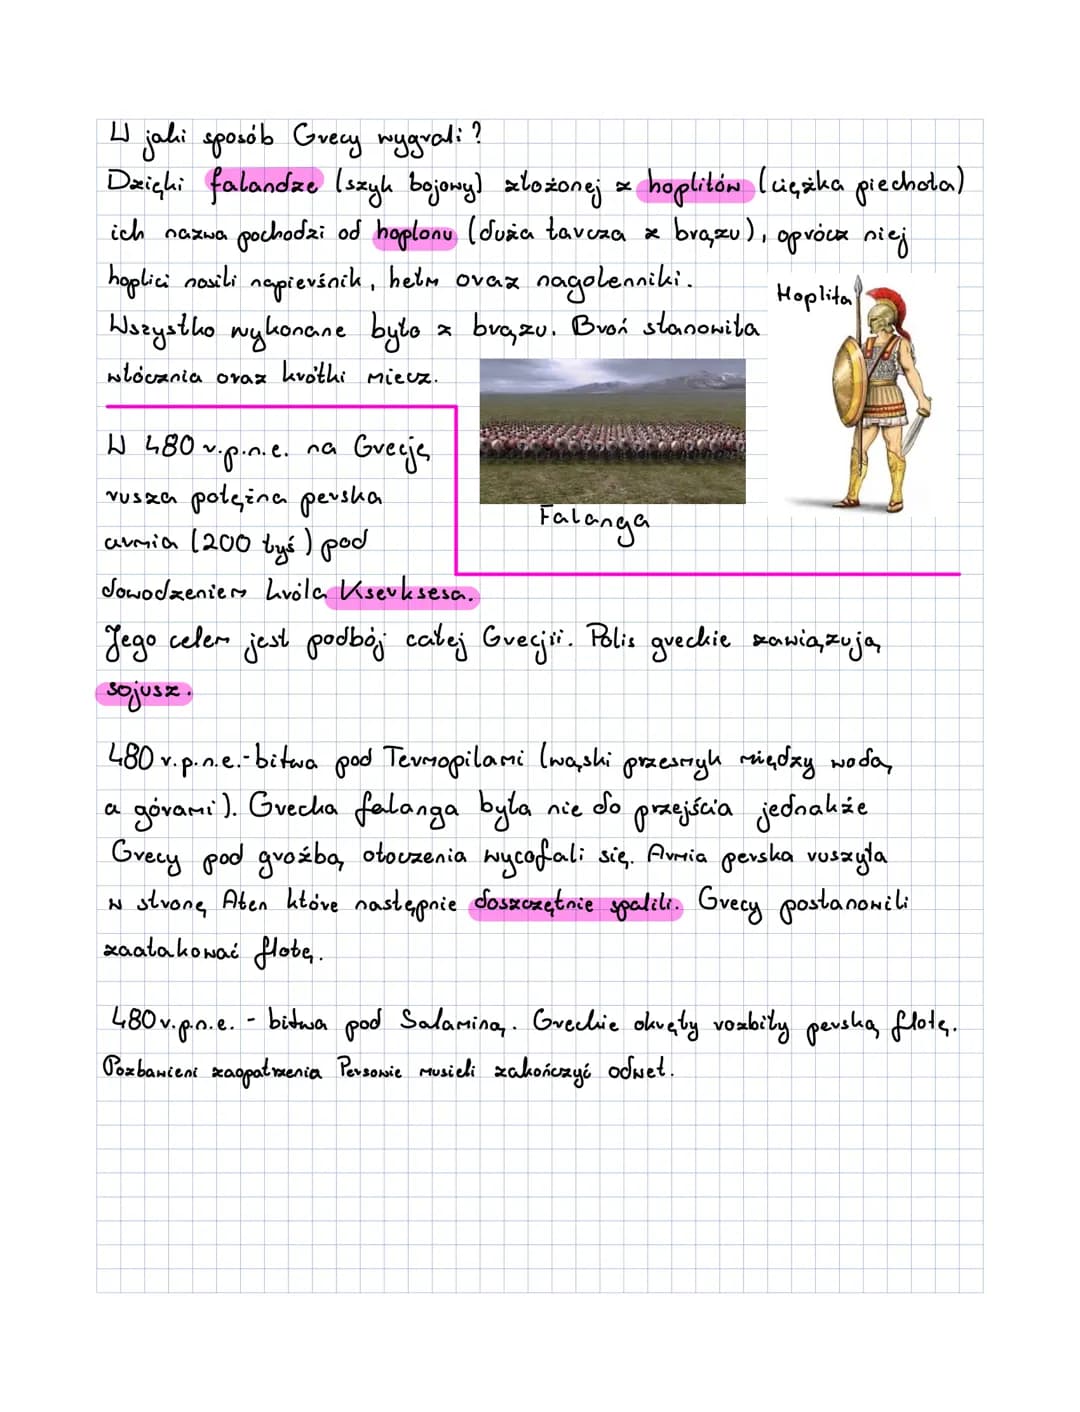 W jaki sposób Grecy wygrali?
Dzięki falandze (szyk bojowy) złożonej z hoplitów (ciężka piechota)
ich nazwa pochodzi od hoplonu (duża tarcza z brązu), oprócz niej
hoplici nosili napierśnik, hełm oraz nagolenniki.
Hoplita
Wszystko wykonane było z brązu. Broń stanowiła
włócznia oraz krótki miecz.
W 480 r.p.n.e. na Grecję
rusza potężna perska
armia (200 tyś) pod
Falanga
dowodzeniem króla Kserksesa.
Jego celem jest podbój całej Grecjii. Polis greckie zawiązują
sojusz.
480 r.p.n.e.-bitwa pod Termopilami (wąski przesmyk między wodą
a górami). Grecka falanga była nie do przejścia jednakże
Grecy pod groźbą otoczenia wycofali się. Armia perska ruszyła
w stronę Aten które następnie doszczętnie spalili. Grecy postanowili
zaatakować flotę.
480 r.p.n.e. - bitwa pod Salaminą. Greckie okręty rozbiły perską flotę.
Pozbawieni zaopatrzenia Persowie musieli zakończyć odwet.